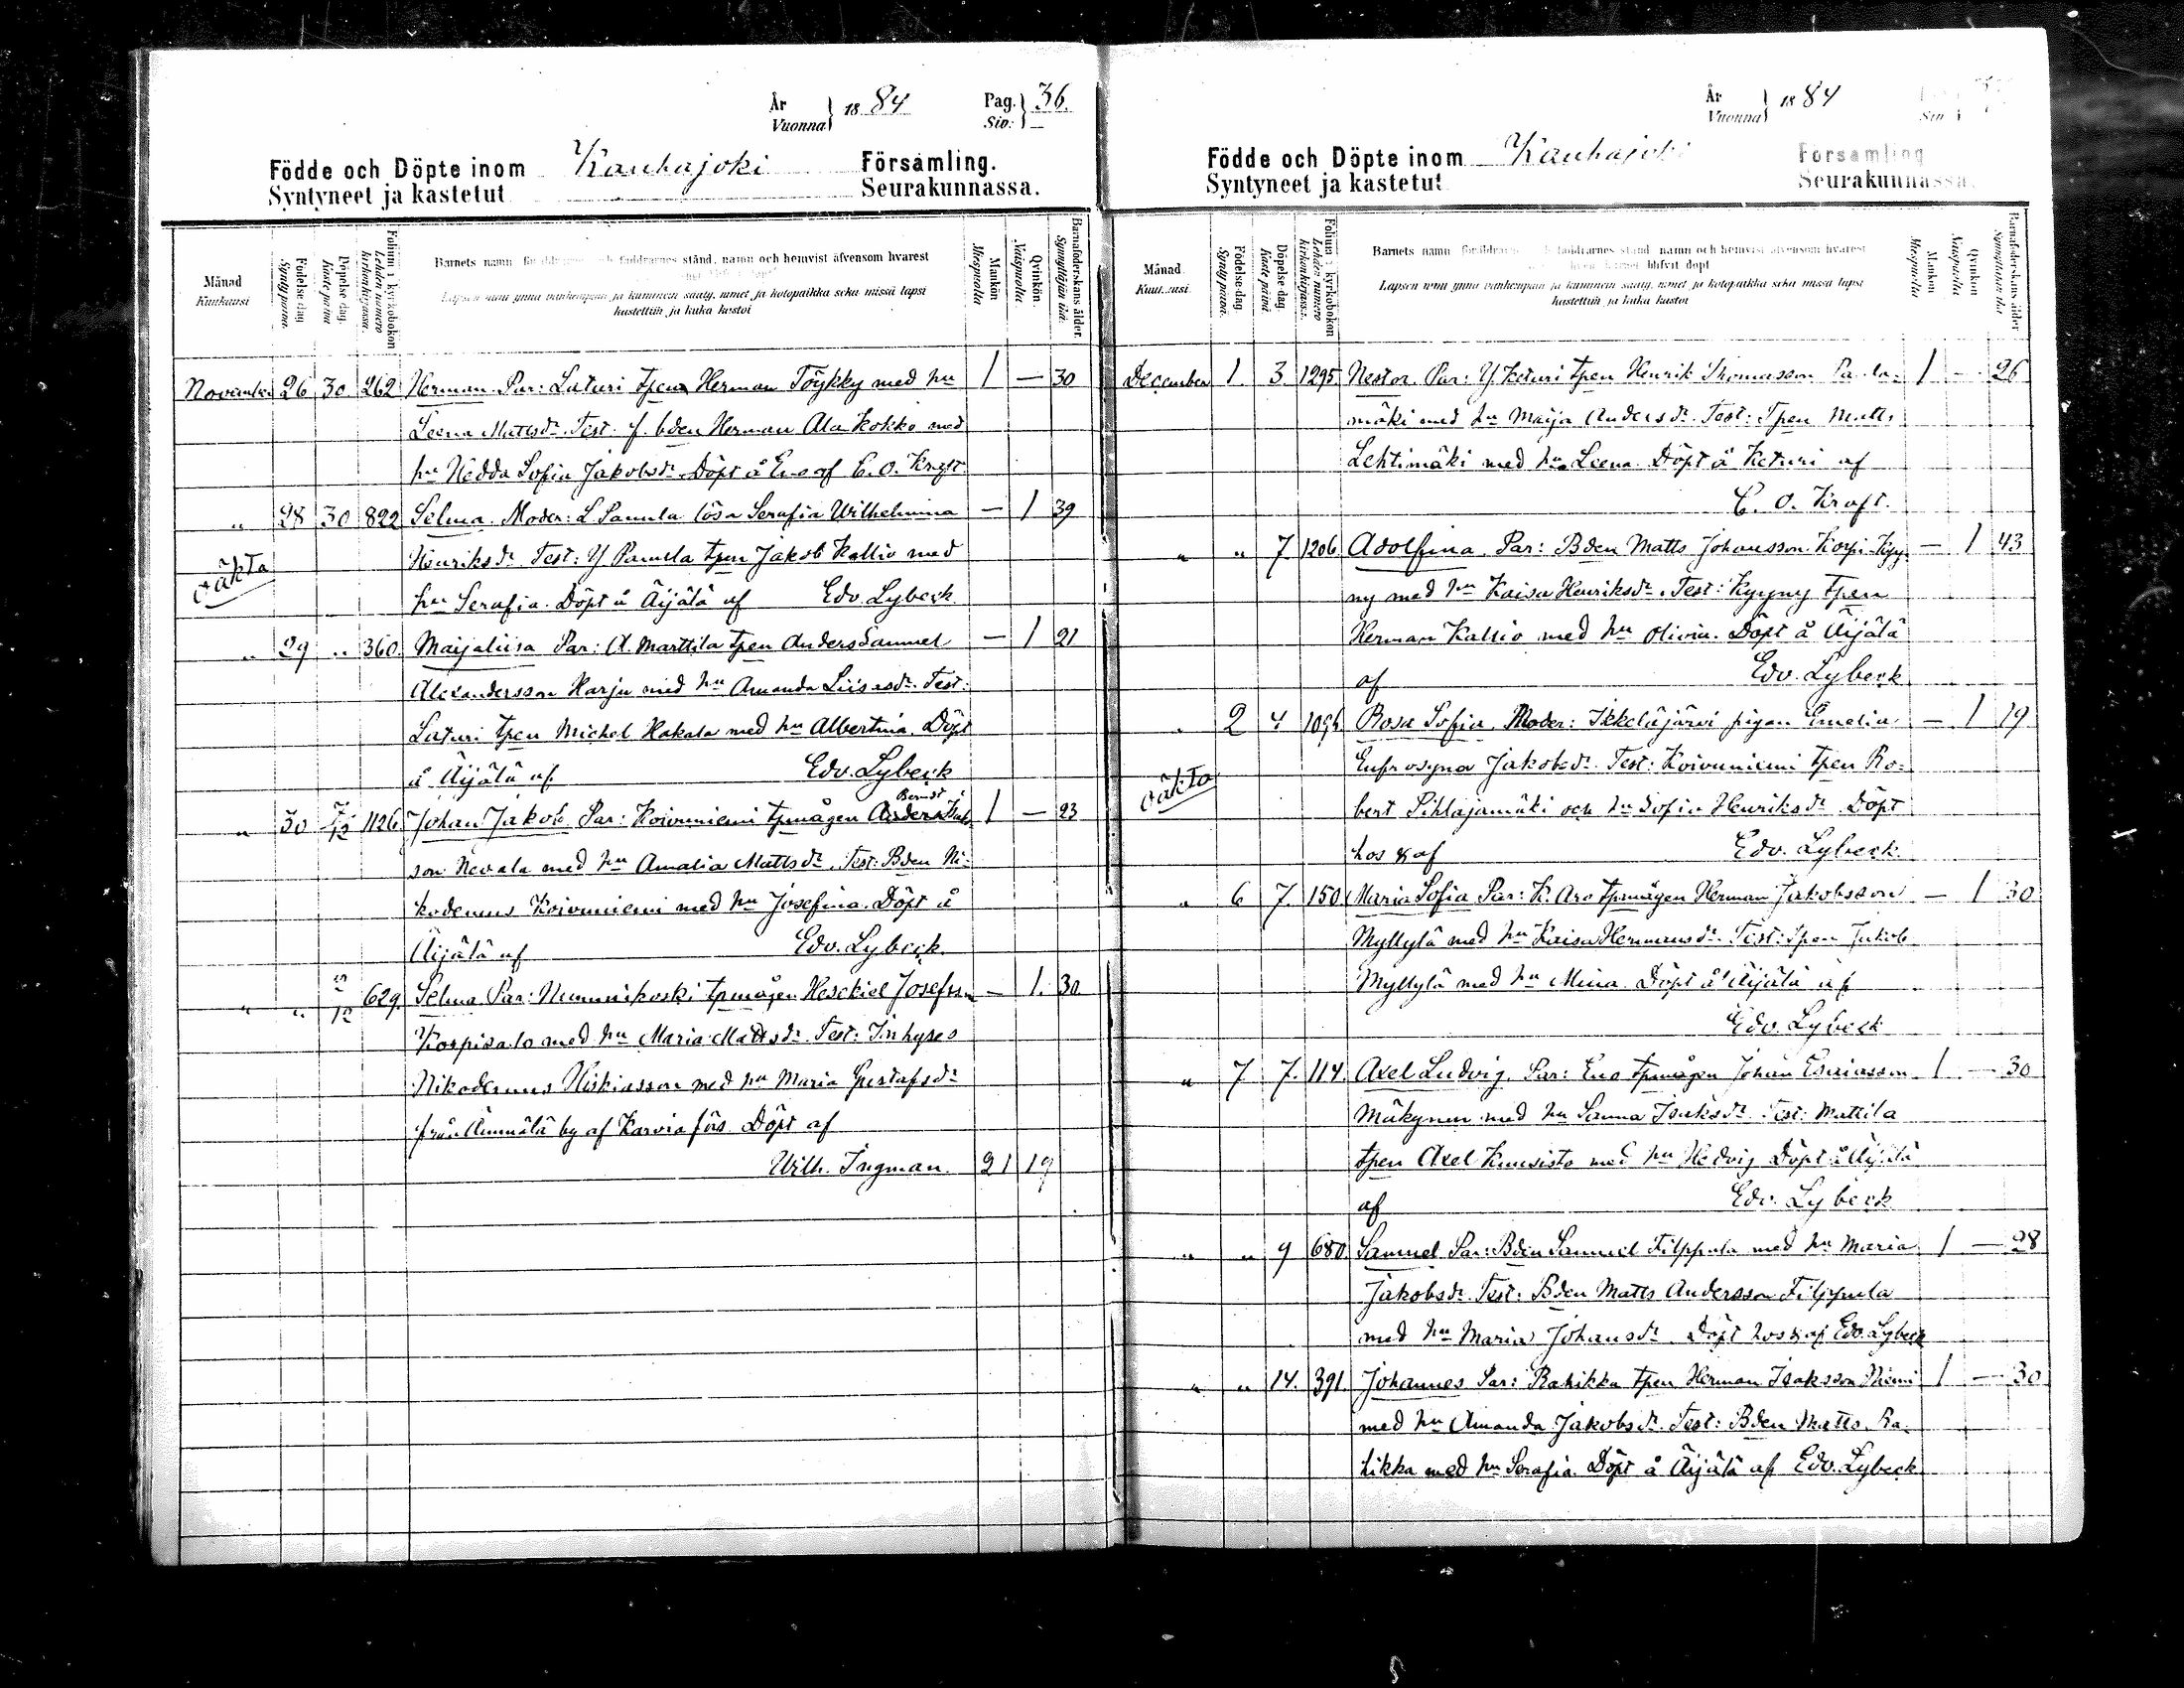 År
Vuonna } 1884 Pag.
Siv: } 36.
Födde och Döpte inom Kauhajoki Församling.
Syntyneet ja kastetut Seurakunnassa.
Månad
Kuukausi
Födelse dag
Synty päivä.
Döpelse dag.
Kaste päivä
Folium i kyrkoboken
Lehden numero kirkonkirjassa.
Barnets namn föräldrarnes och faddrarnes stånd, namn och hemvist äfvensom hvarest
Lapsen nimi ynnä vanhempain ja kummein sääty, nimet ja kotopaikka sekä missä lapsi
kastettiin ja kuka kastoi
Mankön
Miespuolta
Qvinkön.
Vaispuolta.
Barnaföderskans ålder.
Synnyttäjän ikä.
November 26 30 262 Herman Par: Laturi tpen Herman Töykky med hu 1 — 30
Leena Mattsdr. Test. f. bden Herman Ala Kokko med
hu Hedda Sofia Jakobsdr. Döpt å Eno af C. O. Kraft
" 28 30 822 Selma. Moder: L Panula lösa Serafia Wilhelmina — 1 39
oäkta Henriksdr. Test: Y Panula tpen Jakob Kallio med
hu Serafia. Döpt å Äijälä af Edv. Lybeck.
" 29 " 360. Maijaliisa Par: A. Marttila tpen Anders Samuel — 1 21
Alexandersson Harju med hu Amanda Liisasdr. Test:
Laturi tpen Michel Hakala med hu Albertina. Döpt
å Äijälä af Edv. Lybeck
" 30 7/12 1126. Johan Jakob Par: Koivuniemi tpmågen Anders Berndt 1 — 23
son Nevala med hu Amalia Mattsdr. Test: Bden Ni-
kodemus Koivuniemi med hu Josefina. Döpt å
Äijälä af Edv. Lybeck.
" " 629. Selma Par: Nummikoski tpmågen Heskiel Josefsson — 1. 30
Korpisalo med hu Maria Mattsdr. Test: Inhyses
Nikodemus Hiskiasson med hu Maria Gustafsdr
från Ämmälä by af Karvia förs. Döpt af
Wilh. Ingman. 21 19
År
Vuonna } 1884
Födde och Döpte inom Kauhajoki Församling
Syntyneet ja kastetut Seurakunnassa.
Månad.
Kuukausi
Födelse dag.
Synty päivä.
Döpelse dag
Kaste päivä.
Folium i kyrkoboken
Lehden numero kirkonkirjassa.
Barnets namn föräldrarnes och faddrarnes stånd namn och hemvist äfvensom hvarest
barnet blifvit döpt
Lapsen nimi ynnä vanhempain ja kummein sääty, nimet ja kotopaikka sekä missä lapsi
kastettiin ja kuka kastoi
Mankön
Miespuolta
Qvinkön
Vaispuolta
Barnaföderskans ålder
Synnyttäjän ikä
December 1 3 1295 Nestor Par: Y. Keturi tpen Henrik Thomasson Pa la- 1 — 26
mäki med hu Maija Andersdr. Test: Tpen Matts
Lehtimäki med hu Leena. Döpt å Keturi af
C. O. Kraft.
" " 7 1206 Adolfina Par: Bden Matts Johansson Korpi-Kyy- — 1 43
ny med hu Kaisa Henriksdr. Test: Kyyny tpen
Herman Kallio med hu Olivia. Döpt å Äijälä
af Edv. Lybeck
" 2 4 Rosa Sofia. Moder: Ikkeläjärvi pigan Emelia — 1 19
Eufrosyna Jakobsdr. Test: Koivuniemi tpen Ro-
oäkta bert Pihlajamäki och hu Sofia Henriksdr. Döpt
hos & af Edv. Lybeck.
" 6 7. 150 Maria Sofia Par: K. Aro tpmågen Herman Jakobsson — 1 30
Myllylä med hu Kaisa Hermansdr. Test: Tpen Jakob
Myllylä med hu Miina. Döpt å Äijälä af
Edv. Lybeck
" 7 7. 114. Axel Ludvig. Par: Eno tpmågen Johan Esaiasson 1 — 30
Mäkynen med hu Sanna Isaksdr. Test: Mattila
tpen Axel Kuusisto med hu Hedvig Döpt å Äijälä
af Edv. Lybeck
" " 9 680. Samuel Par: Bden Samuel Filppula med hu Maria 1 — 28
Jakobsdr. Test: Bden Matts Andersson Filppula
med hu Maria Johansdr. Döpt hos & af Edv. Lybeck
" " 14. 391. Johannes Par: Rahikka tpen Herman Isaksson Niemi 1 — 30
med hu Amanda Jakobsdr. Test: Bden Matts Ra-
hikka med hu Serafia. Döpt å Äijälä af Edv. Lybeck